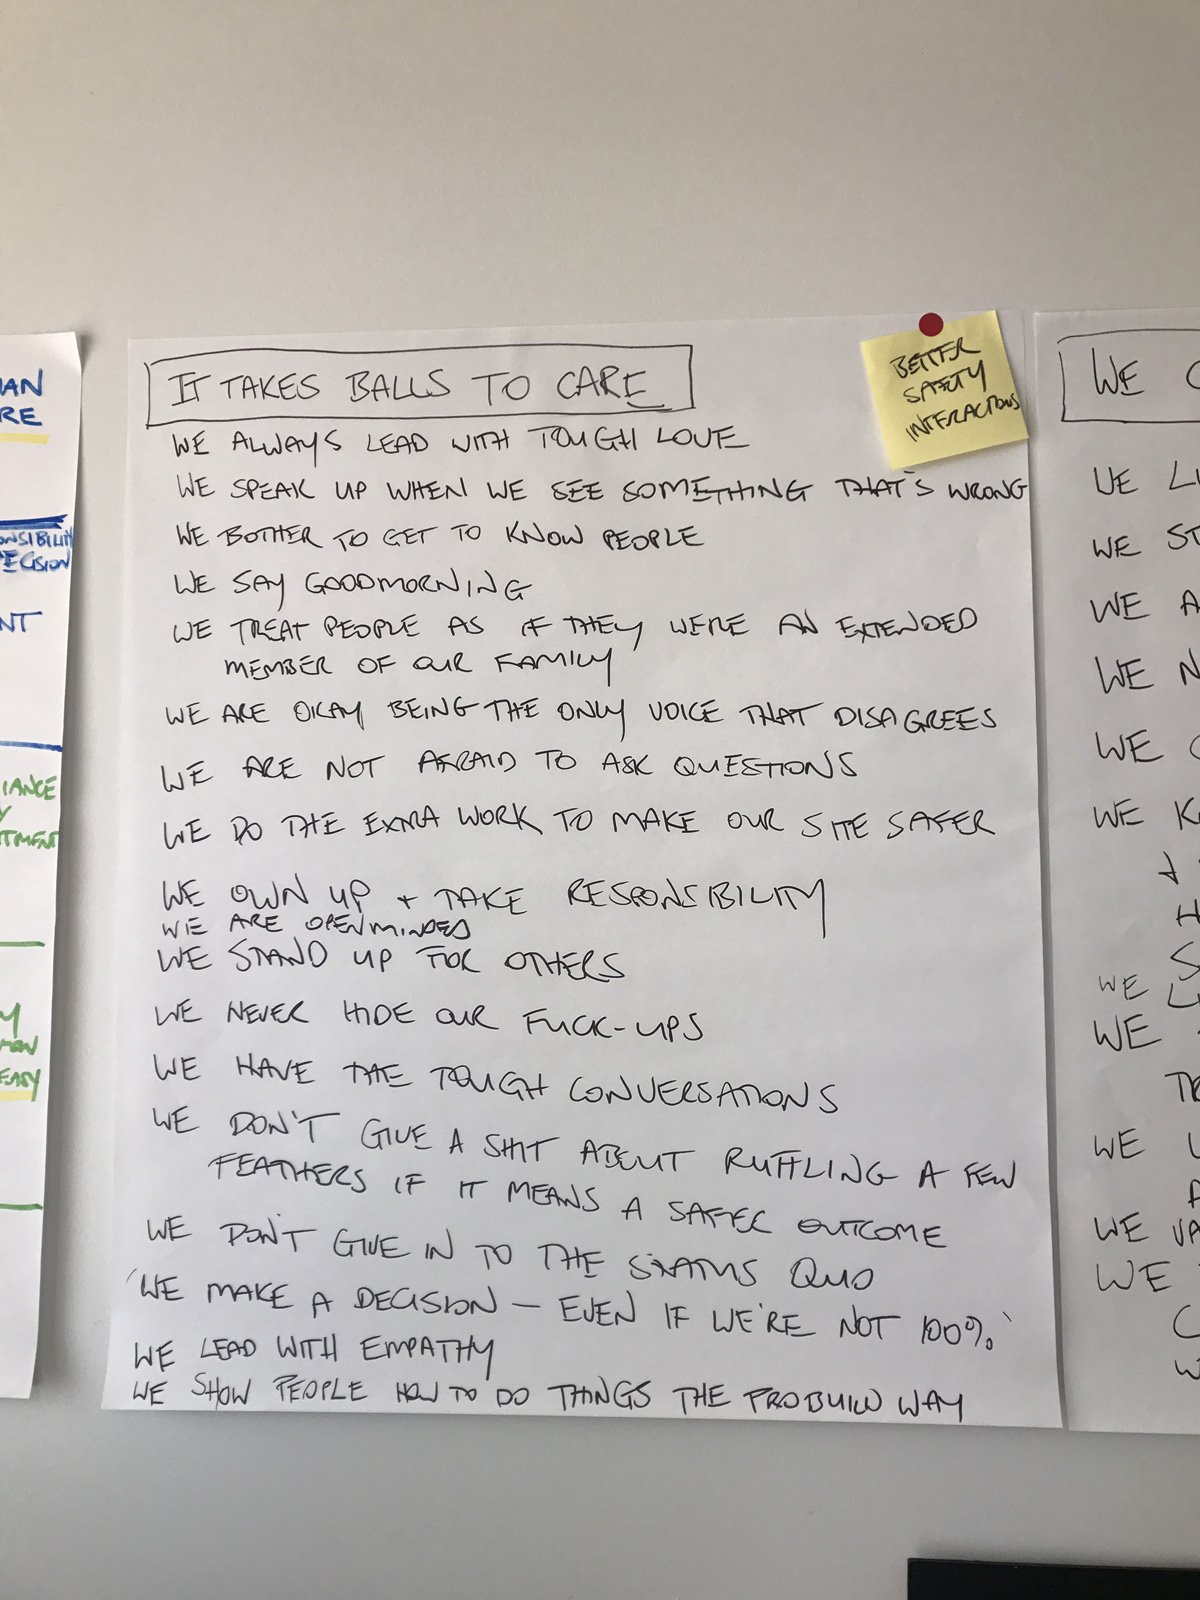 IT TAKES BALLS TO CARE
WE ALWAYS LEAD WITH TOUGH LOVE
WE SPEAK UP WHEN WE SEE SOMETHING THAT'S WRONG
WE BOTHER TO GET TO KNOW PEOPLE
WE SAY GOODMORNING
WE TREAT PEOPLE AS IF THEY WERE AN EXTENDED
MEMBER OF OUR FAMILY
WE ARE OKAY BEING THE ONLY VOICE THAT DISAGREES
WE ARE NOT AFRAID TO ASK QUESTIONS
WE DO THE EXTRA WORK TO MAKE OUR SITE SAFER
WE OWN UP + TAKE RESPONSIBILITY
WE ARE OPENMINDED
WE STAND UP FOR OTHERS
WE NEVER HIDE OUR FUCK-UPS
WE HAVE THE TOUGH CONVERSATIONS
WE DON'T GIVE A SHIT ABOUT RUFFLING A FEW
FEATHERS IF IT MEANS A SAFER OUTCOME
WE DON'T GIVE IN TO THE STATUS QUO
'WE MAKE A DECISION — EVEN IF WE'RE NOT 100%'
WE LEAD WITH EMPATHY
WE SHOW PEOPLE HOW TO DO THINGS THE PROBUILD WAY
BETTER
SAFETY
INTERACTIONS
WE
WE
WE
WE
WE
WE
WE
+
WE
WE
WE
WE
WE